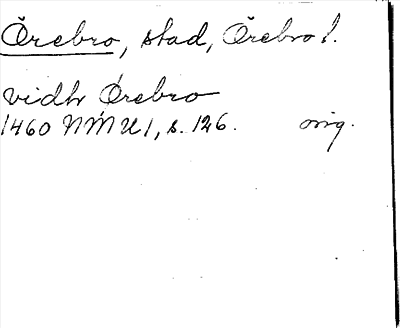 Örebro, stad, Örebro l.
vidh Örebro
1460 NMU 1, s. 126. orig.